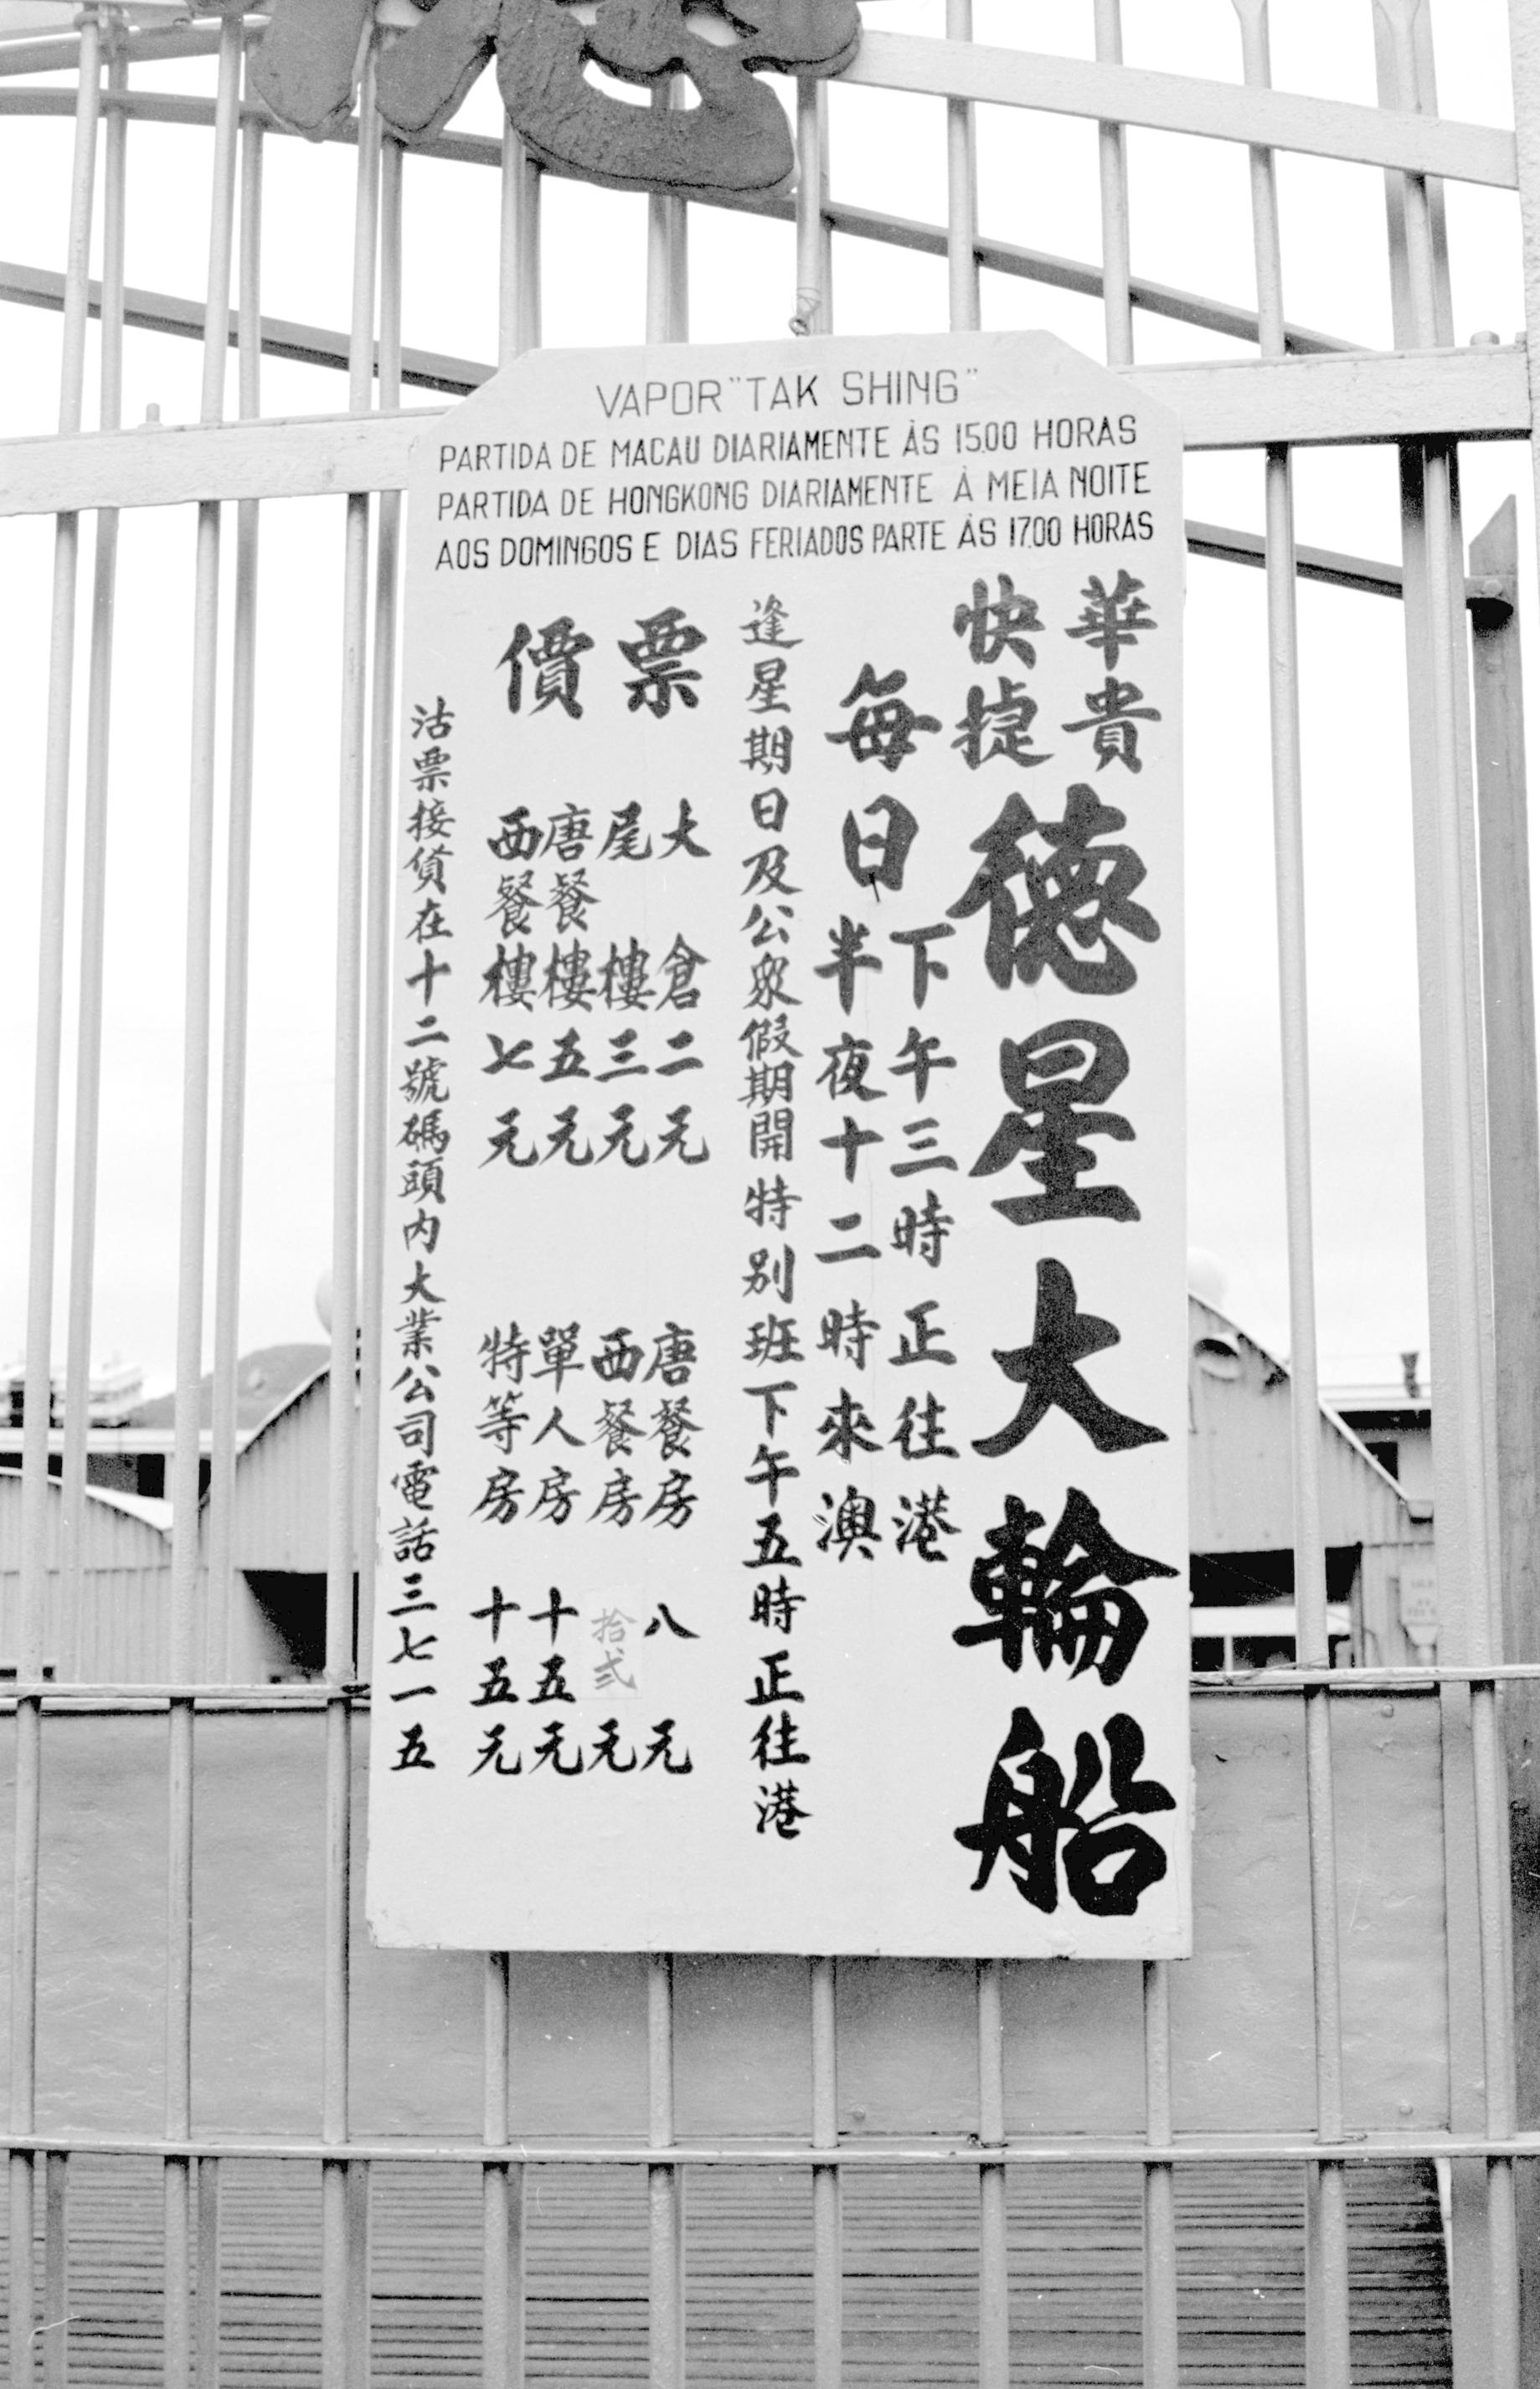 VAPOR "TAK SHING"
PARTIDA DE MACAU DIARIAMENTE ÀS 15.00 HORAS
PARTIDA DE HONGKONG DIARIAMENTE À MEIA NOITE
AOS DOMINGOS E DIAS FERIADOS PARTE ÀS 17.00 HORAS
華貴
快捷
德星大輪船
每日
下午三時正往港
半夜十二時來澳
逢星期日及公眾假期開特別班下午五時正往港
票價
大倉二元
尾樓三元
唐餐樓五元
西餐樓七元
唐餐房八元
西餐房拾弍元
單人房十五元
特等房十五元
沽票接貨在十二號碼頭內大業公司電話三七一五